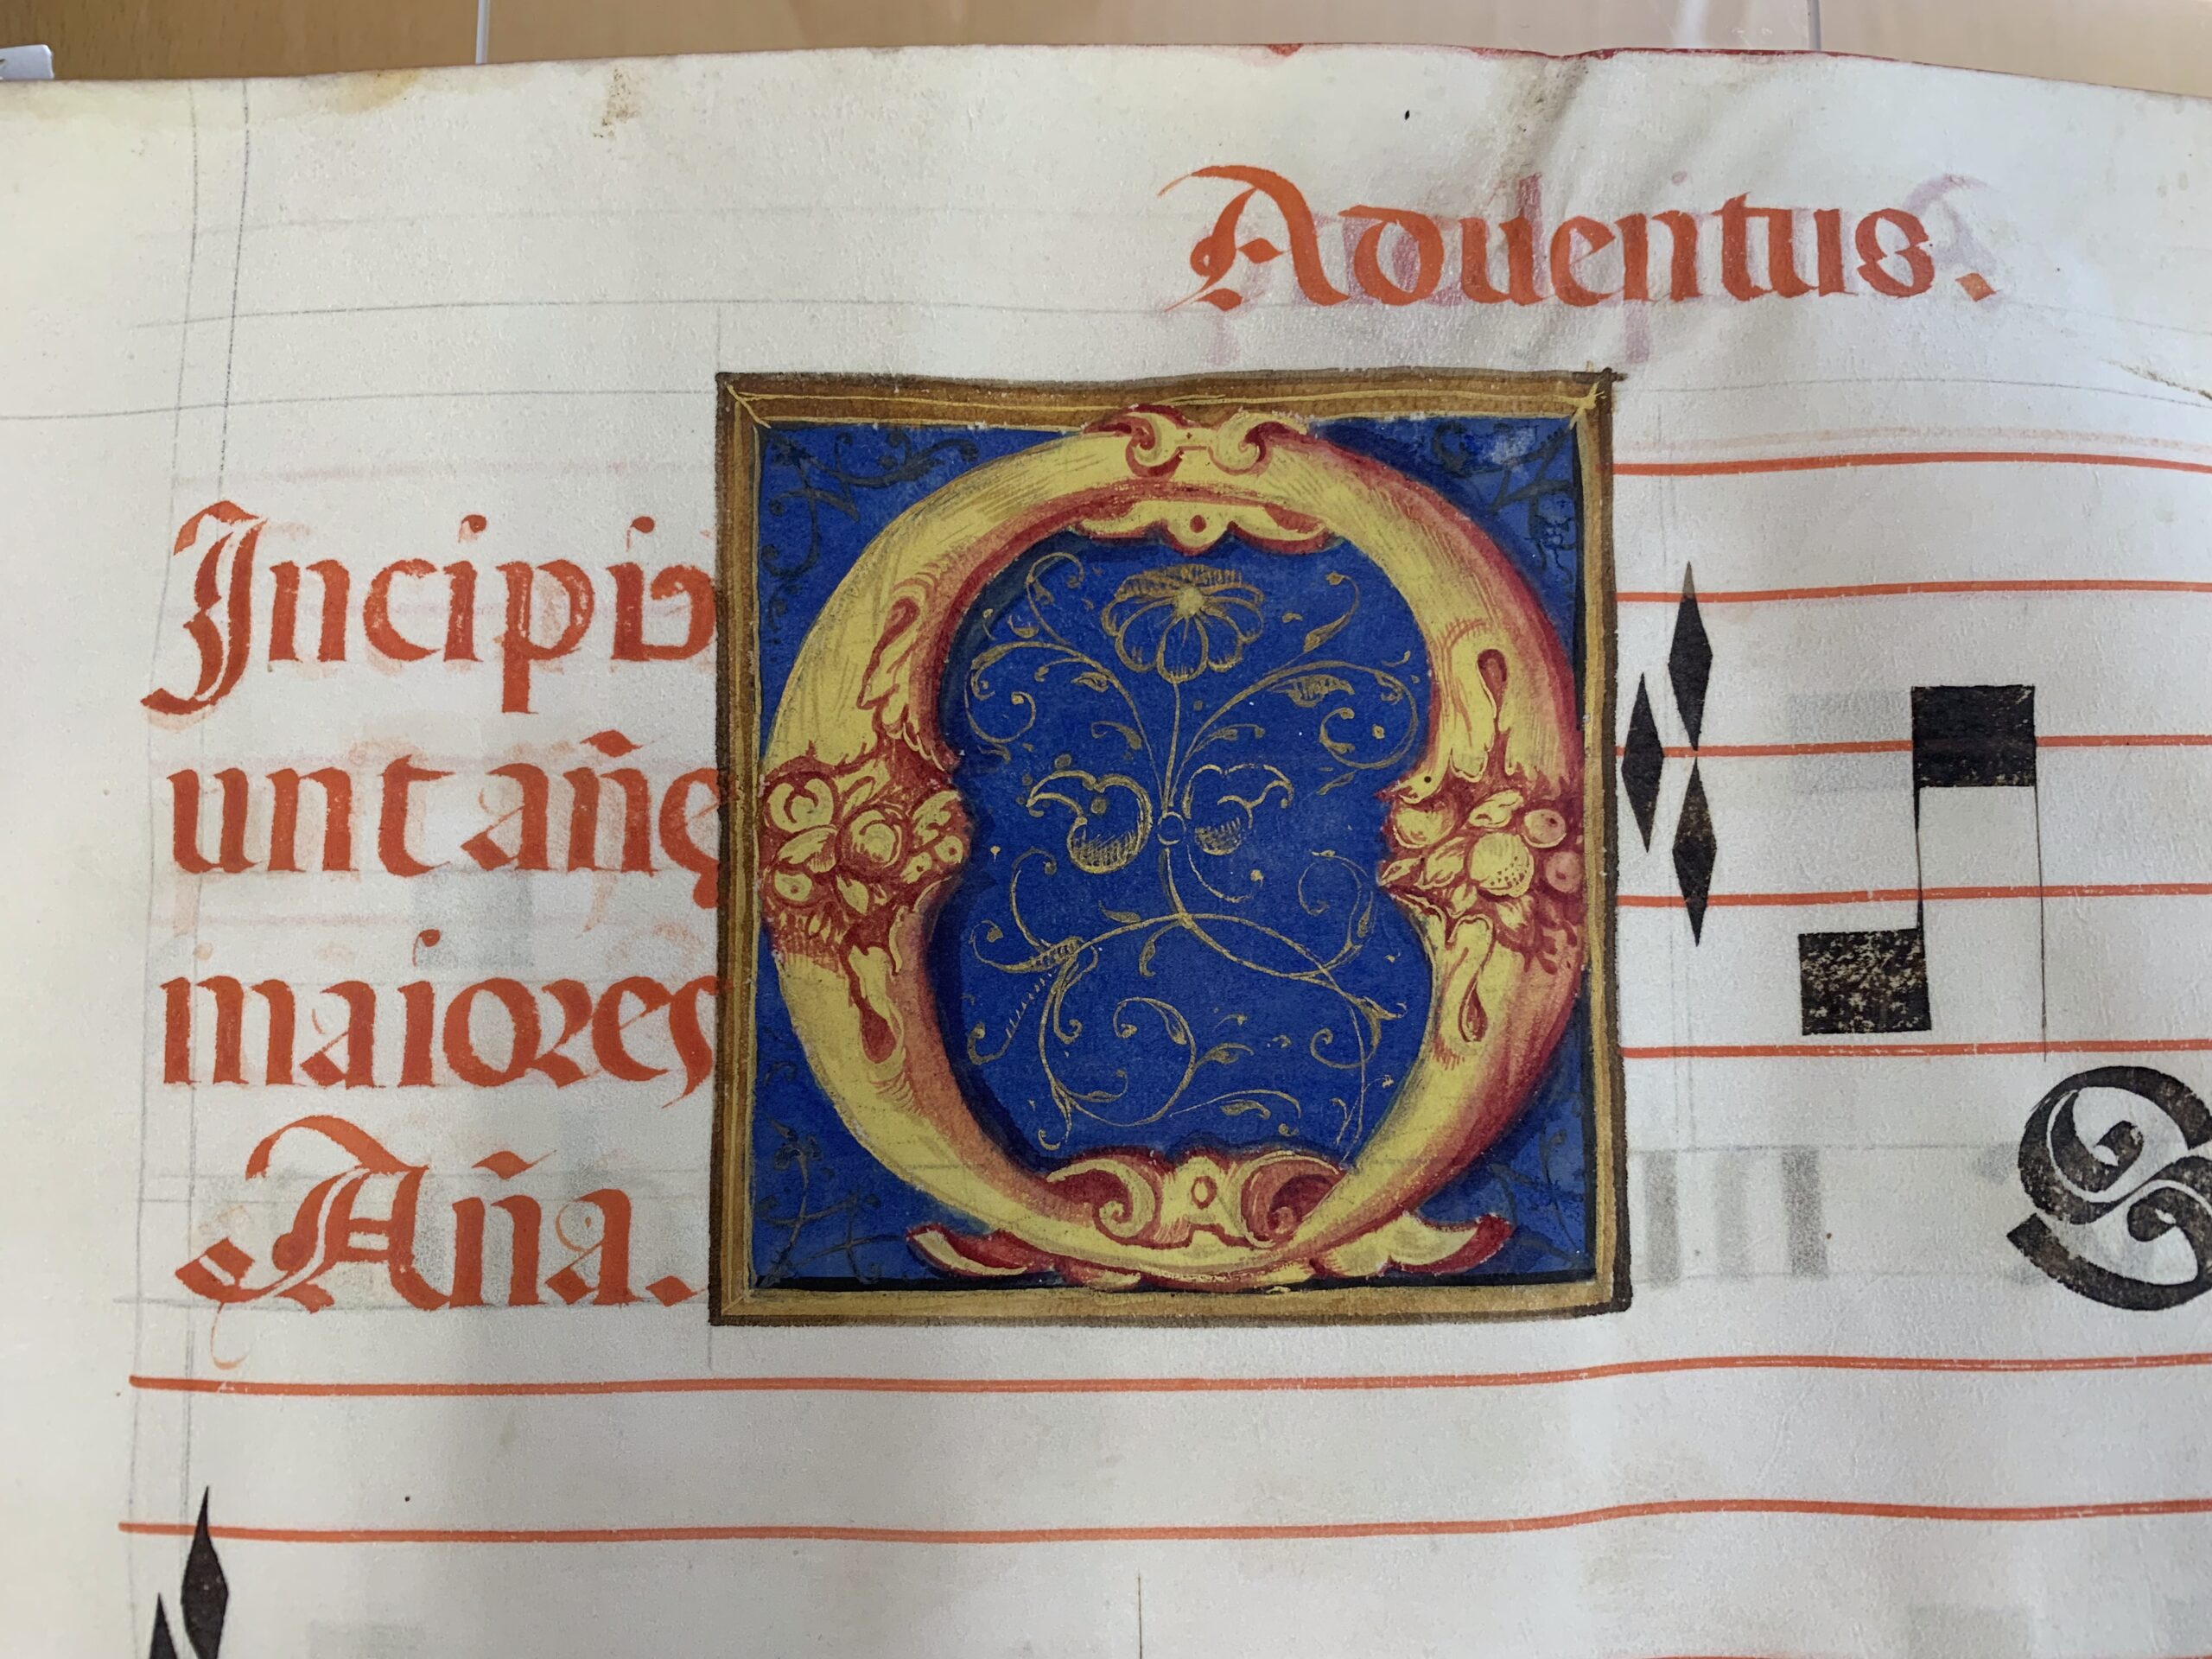 Aduentus.
Incipi
unt añe
maiores
Aña.
O S